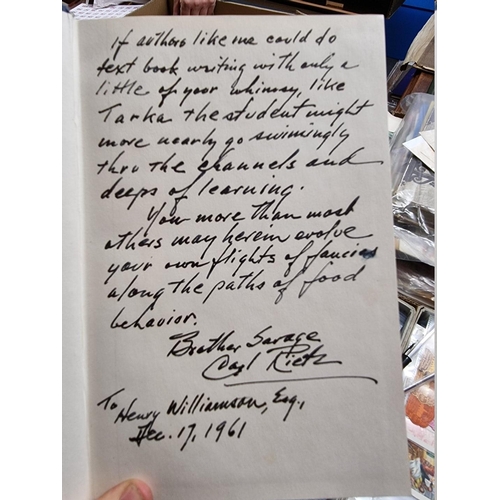 If authors like me could do
text book writing with only a
little of your whimsy, like
Tarka the student might
more nearly go swimingly
thru the channels and
deeps of learning.
You more than most
others may herein evolve
your own flights of fancies
along the paths of food
behavior.
Brother Savage
Carl Rietz
To Henry Williamson, Esq.,
Dec. 17, 1961